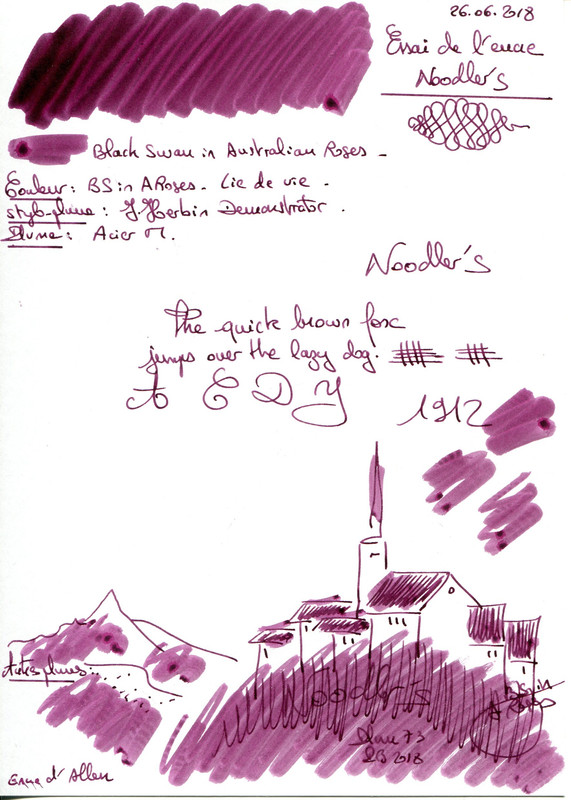 26.06.2018
Essai de l'encre
Noodler's
Black Swan in Australian Roses -
Couleur: BS in A Roses - Lie de vie -
stylo-plume: J. Herbin Demonstrator.
Plume: Acier M.
Noodler's
The quick brown fox
jumps over the lazy dog.
A E D Y
1912
Autres plumes
Noodler's